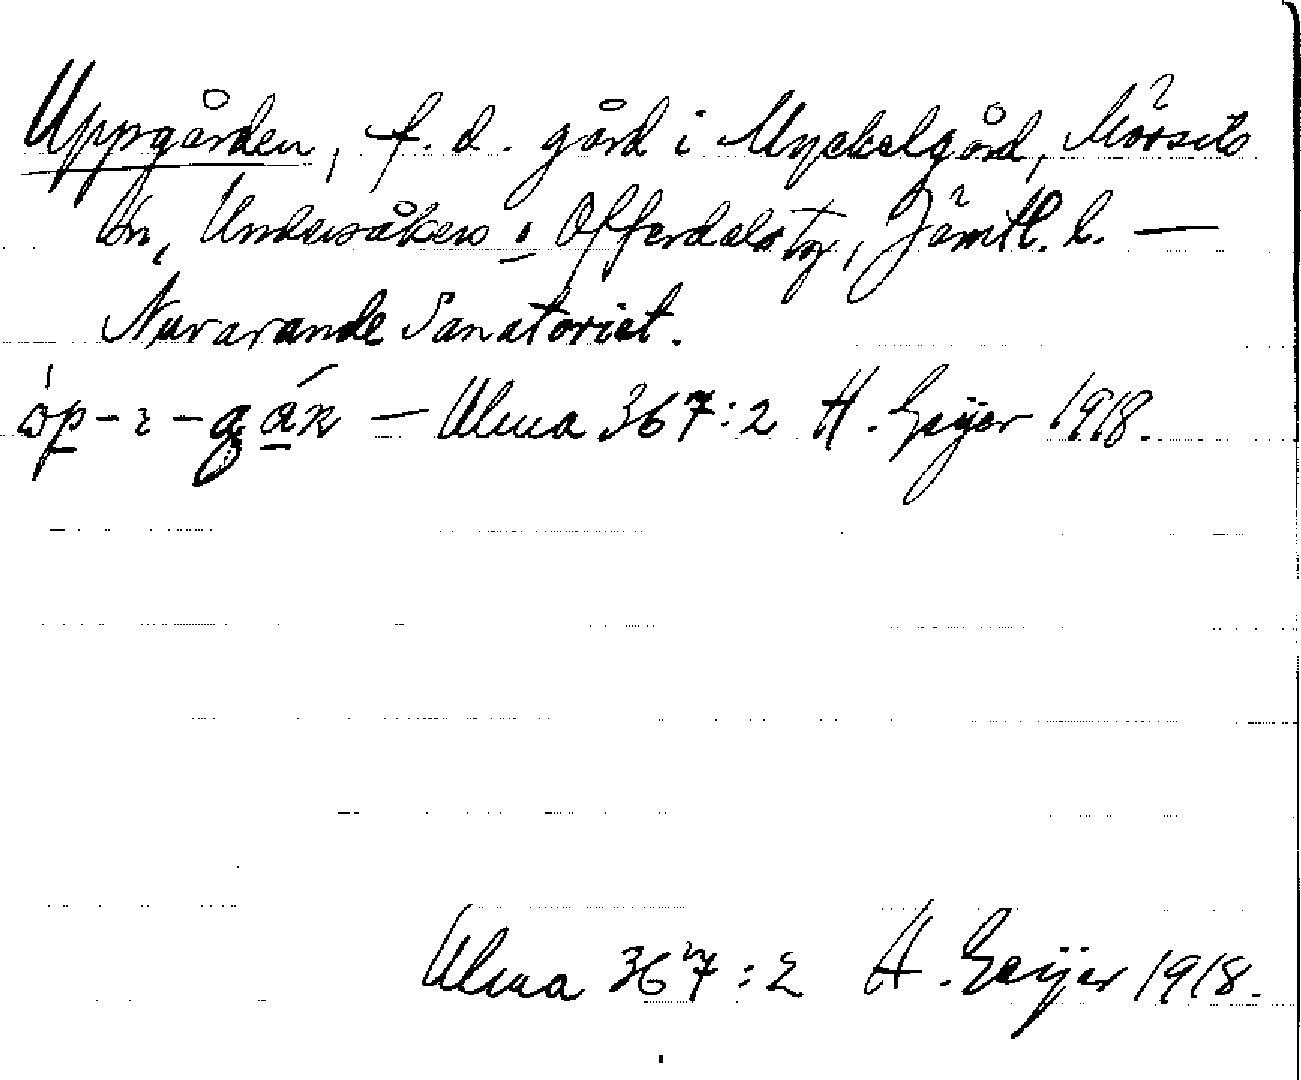 Uppgården, f. d. gård i Myckelgård, Mörsils
sn, Undersåkers o Offerdals tg, Jämtl. l. —
Nuvarande Sanatoriet.
— Ulma 367:2 H. Geijer 1918.
Ulma 367:2 H. Geijer 1918.